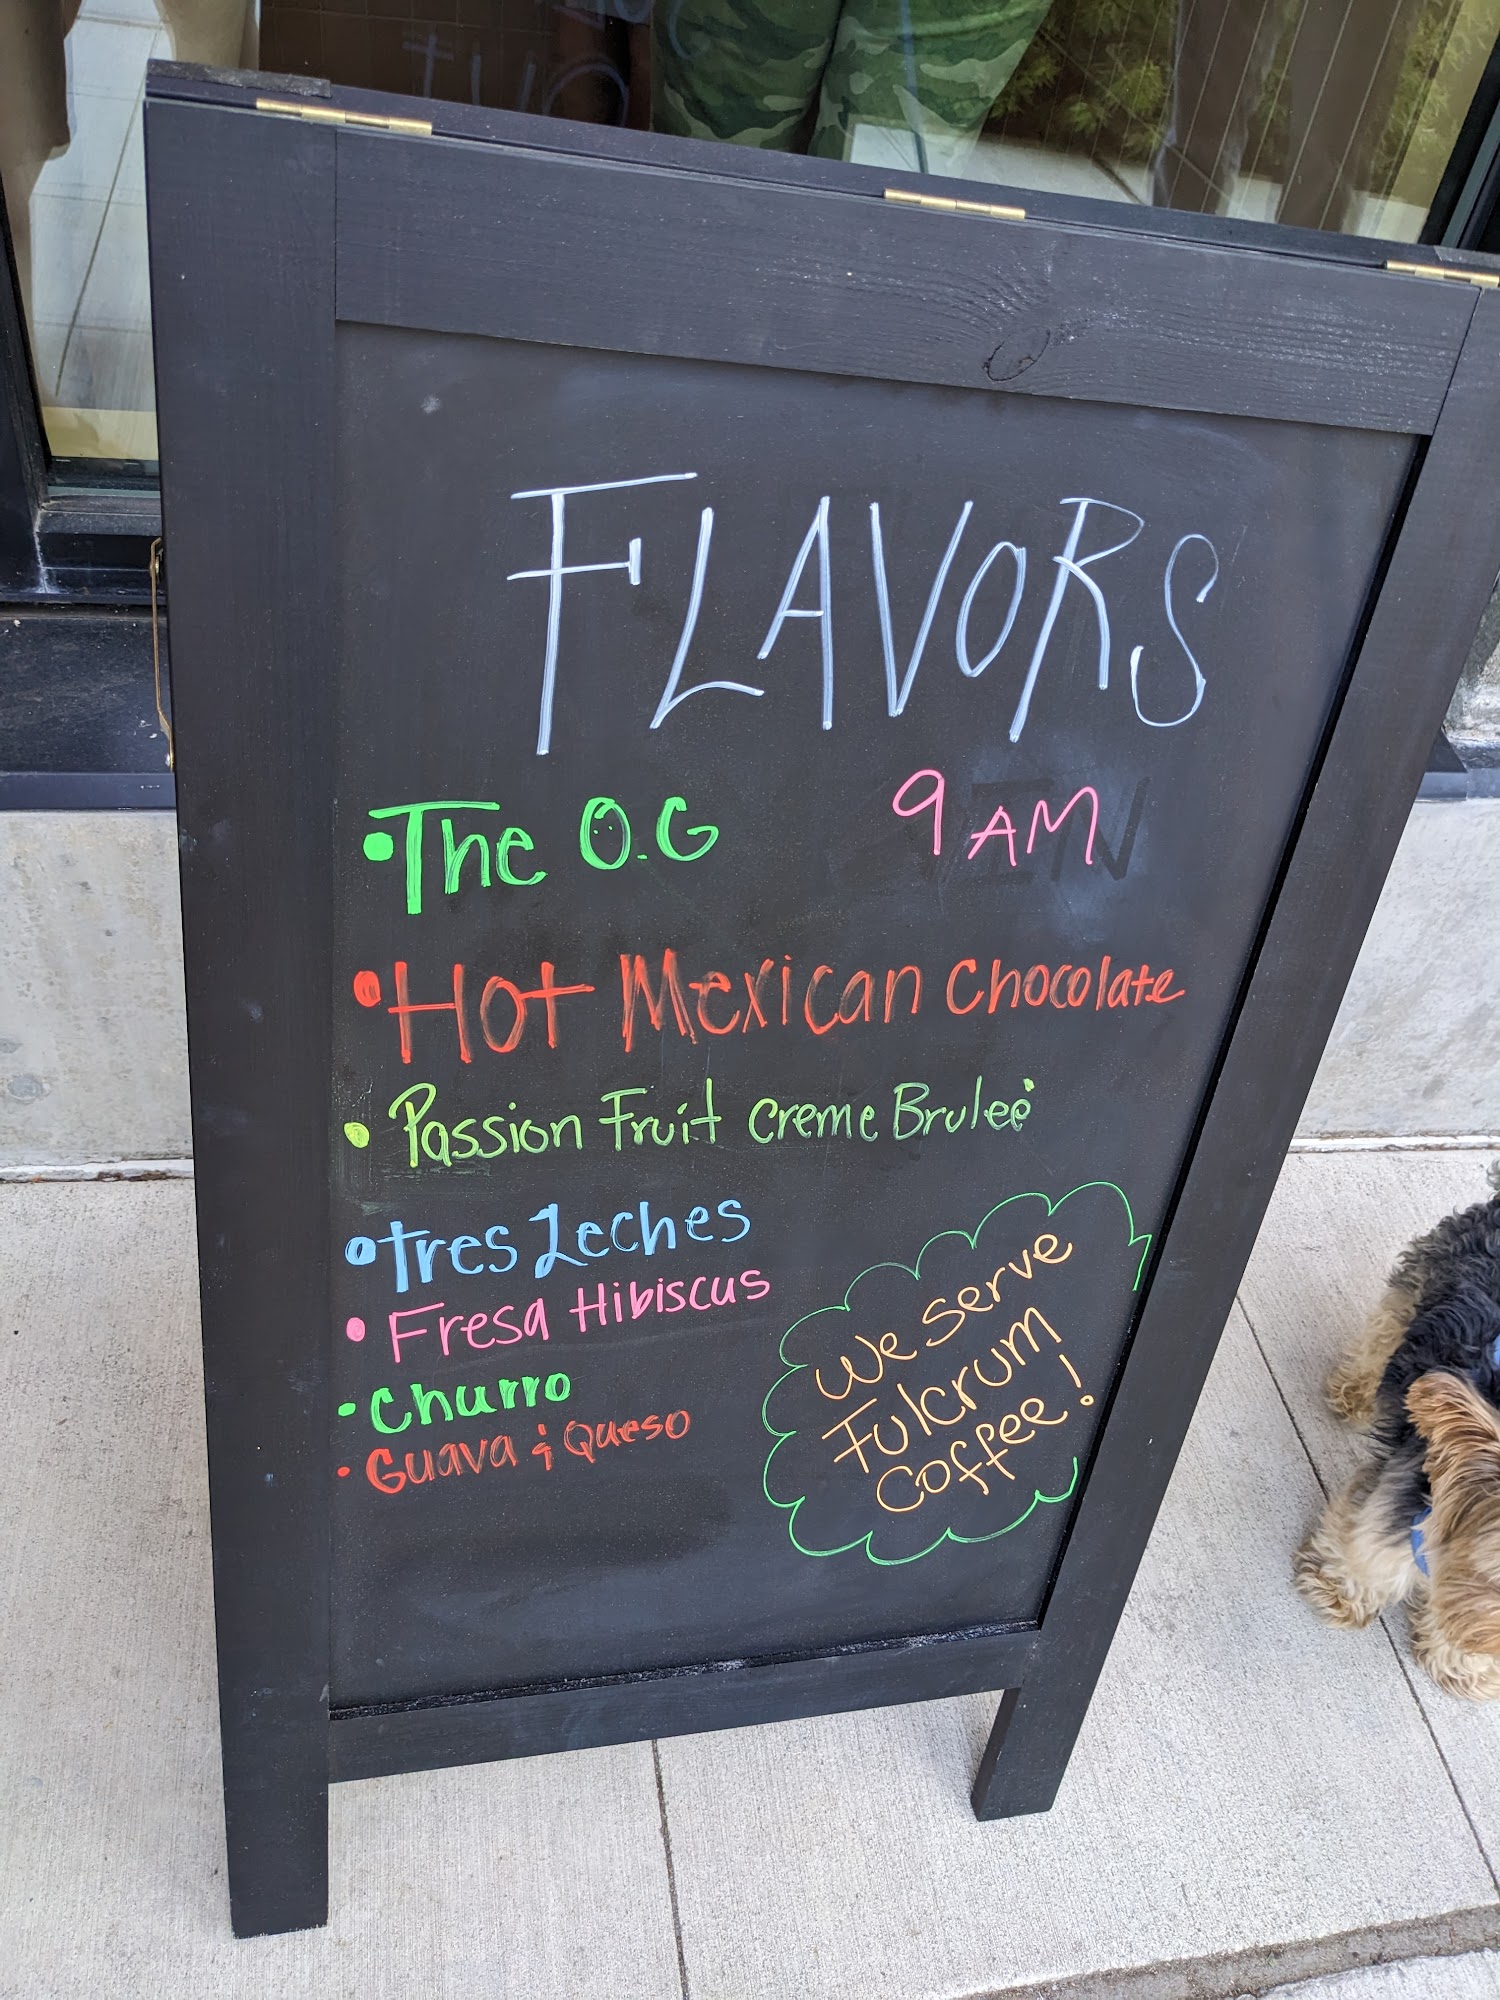 FLAVORS
• The O.G 9 AM
• Hot Mexican Chocolate
• Passion Fruit Creme Brulee
• Tres Leches
• Fresa Hibiscus
• Churro
• Guava & Queso
We serve
Fulcrum
Coffee!